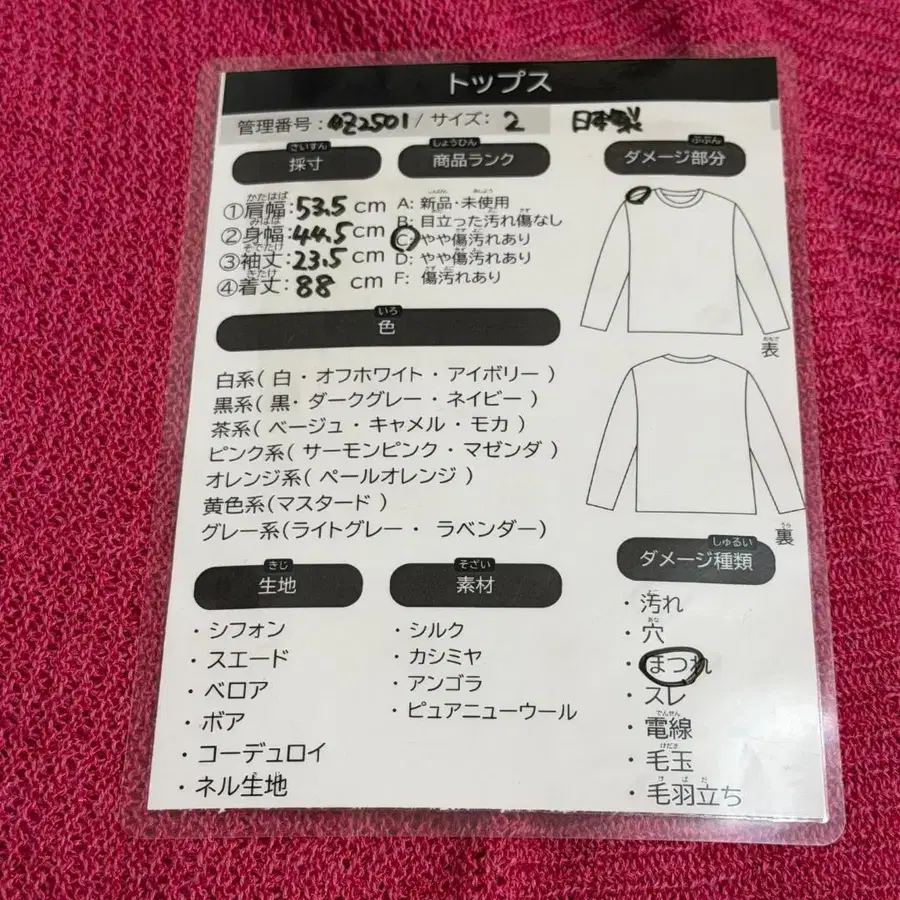 トップス
管理番号:
z2501 / サイズ: 2 日本製
さいすん
採寸
しょうひん
商品ランク
ぶぶん
ダメージ部分
かたはば
①肩幅:53.5 cm
みはば
②身幅:44.5 cm
そでたけ
③袖丈:23.5 cm
きたけ
④着丈:88 cm
A: 新品・未使用
B: 目立った汚れ傷なし
C: やや傷汚れあり
D: やや傷汚れあり
F: 傷汚れあり
おもて
表
いろ
色
白系( 白・オフホワイト・アイボリー )
黒系( 黒・ダークグレー・ネイビー )
茶系( ベージュ・キャメル・モカ )
ピンク系( サーモンピンク・マゼンダ )
オレンジ系( ペールオレンジ )
黄色系(マスタード )
グレー系(ライトグレー・ ラベンダー)
うら
裏
きじ
生地
・シフォン
・スエード
・ベロア
・ボア
・コーデュロイ
・ネル生地
そざい
素材
・シルク
・カシミヤ
・アンゴラ
・ピュアニューウール
しゅるい
ダメージ種類
・汚れ
あな
・穴
・まつれ
・スレ
でんせん
・電線
けだま
・毛玉
けばだ
・毛羽立ち